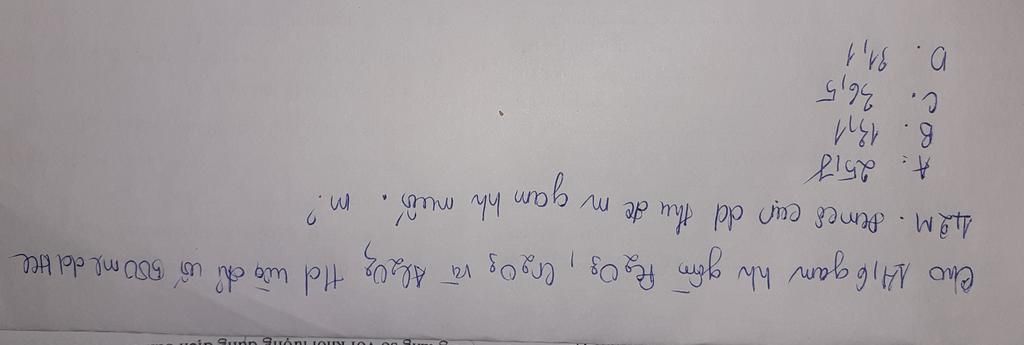 Cho 14,6 gam hh gồm Fe2O3, Cr2O3 và Al2O3 tđ vừa đủ với 500 ml dd HCl
1,2M. cạn dd thu đc m gam hh muối. m?
A. 25,7
B. 13,1
C. 36,5
D. 31,1